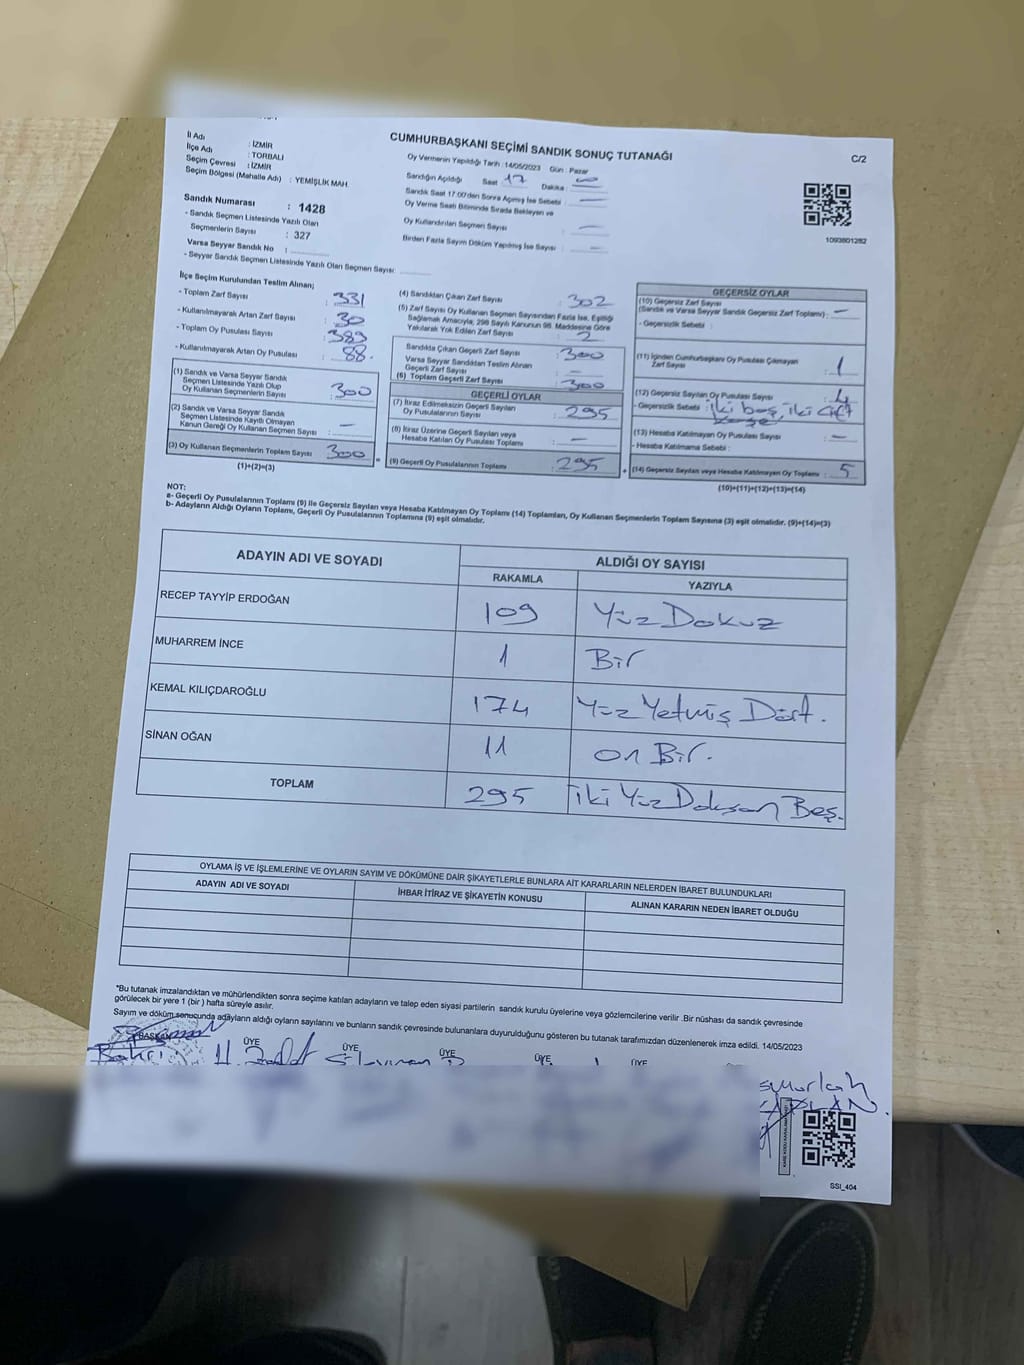 CUMHURBAŞKANI SEÇİMİ SANDIK SONUÇ TUTANAĞI
C/2
İl Adı : İZMİR
İlçe Adı : TORBALI
Seçim Çevresi : İZMİR
Seçim Bölgesi (Mahalle Adı) : YEMİŞLİK MAH.
Oy Vermenin Yapıldığı Tarih : 14/05/2023 Gün : Pazar
Sandığın Açıldığı Saat 17 Dakika :
Sandık Saat 17:00'den Sonra Açılmış İse Sebebi : —
Oy Verme Saati Bitiminde Sırada Bekleyen ve
Oy Kullandırılan Seçmen Sayısı : —
Birden Fazla Sayım Döküm Yapılmış İse Sayısı : —
1093801282
Sandık Numarası : 1428
- Sandık Seçmen Listesinde Yazılı Olan
Seçmenlerin Sayısı : 327
Varsa Seyyar Sandık No :
- Seyyar Sandık Seçmen Listesinde Yazılı Olan Seçmen Sayısı:
İlçe Seçim Kurulundan Teslim Alınan;
- Toplam Zarf Sayısı : 331
- Kullanılmayarak Artan Zarf Sayısı : 30
- Toplam Oy Pusulası Sayısı : 389
- Kullanılmayarak Artan Oy Pusulası : 88.
(1) Sandık ve Varsa Seyyar Sandık
Seçmen Listesinde Yazılı Olup
Oy Kullanan Seçmenlerin Sayısı : 300
(2) Sandık ve Varsa Seyyar Sandık
Seçmen Listesinde Kayıtlı Olmayan
Kanun Gereği Oy Kullanan Seçmen Sayısı : —
(3) Oy Kullanan Seçmenlerin Toplam Sayısı : 300
(1)+(2)=(3)
(4) Sandıktan Çıkan Zarf Sayısı : 302
(5) Zarf Sayısı Oy Kullanan Seçmen Sayısından Fazla İse, Eşitliği
Sağlamak Amacıyla, 298 Sayılı Kanunun 98. Maddesine Göre
Yakılarak Yok Edilen Zarf Sayısı : 2
Sandıkta Çıkan Geçerli Zarf Sayısı : 300
Varsa Seyyar Sandıktan Teslim Alınan
Geçerli Zarf Sayısı : —
(6) Toplam Geçerli Zarf Sayısı : 300
GEÇERLİ OYLAR
(7) İtiraz Edilmeksizin Geçerli Sayılan
Oy Pusulalarının Sayısı : 295
(8) İtiraz Üzerine Geçerli Sayılan veya
Hesaba Katılan Oy Pusulası Toplamı : —
(9) Geçerli Oy Pusulalarının Toplamı : 295
GEÇERSİZ OYLAR
(10) Geçersiz Zarf Sayısı
(Sandık ve Varsa Seyyar Sandık Geçersiz Zarf Toplamı) : —
- Geçersizlik Sebebi :
(11) İçinden Cumhurbaşkanı Oy Pusulası Çıkmayan
Zarf Sayısı : 1
(12) Geçersiz Sayılan Oy Pusulası Sayısı : 4
- Geçersizlik Sebebi : iki boş, iki çift
(13) Hesaba Katılmayan Oy Pusulası Sayısı : —
- Hesaba Katılmama Sebebi :
(14) Geçersiz Sayılan veya Hesaba Katılmayan Oy Toplamı : 5
(10)+(11)+(12)+(13)=(14)
NOT:
a- Geçerli Oy Pusulalarının Toplamı (9) ile Geçersiz Sayılan veya Hesaba Katılmayan Oy Toplamı (14) Toplamları, Oy Kullanan Seçmenlerin Toplam Sayısına (3) eşit olmalıdır. (9)+(14)=(3)
b- Adayların Aldığı Oyların Toplamı, Geçerli Oy Pusulalarının Toplamına (9) eşit olmalıdır.
ADAYIN ADI VE SOYADI ALDIĞI OY SAYISI
RAKAMLA YAZIYLA
RECEP TAYYİP ERDOĞAN 109 Yüz Dokuz
MUHARREM İNCE 1 Bir
KEMAL KILIÇDAROĞLU 174 Yüz Yetmiş Dört.
SİNAN OĞAN 11 On Bir.
TOPLAM 295 İki Yüz Doksan Beş.
OYLAMA İŞ VE İŞLEMLERİNE VE OYLARIN SAYIM VE DÖKÜMÜNE DAİR ŞİKAYETLERLE BUNLARA AİT KARARLARIN NELERDEN İBARET BULUNDUKLARI
ADAYIN ADI VE SOYADI İHBAR İTİRAZ VE ŞİKAYETİN KONUSU ALINAN KARARIN NEDEN İBARET OLDUĞU
*Bu tutanak imzalandıktan ve mühürlendikten sonra seçime katılan adayların ve talep eden siyasi partilerin sandık kurulu üyelerine veya gözlemcilerine verilir .Bir nüshası da sandık çevresinde
görülecek bir yere 1 (bir ) hafta süreyle asılır.
Sayım ve döküm sonucunda adayların aldığı oyların sayılarını ve bunların sandık çevresinde bulunanlara duyurulduğunu gösteren bu tutanak tarafımızdan düzenlenerek imza edildi. 14/05/2023
BAŞKAN ÜYE ÜYE ÜYE ÜYE ÜYE
Bahri
KAPLAN
SSI_404